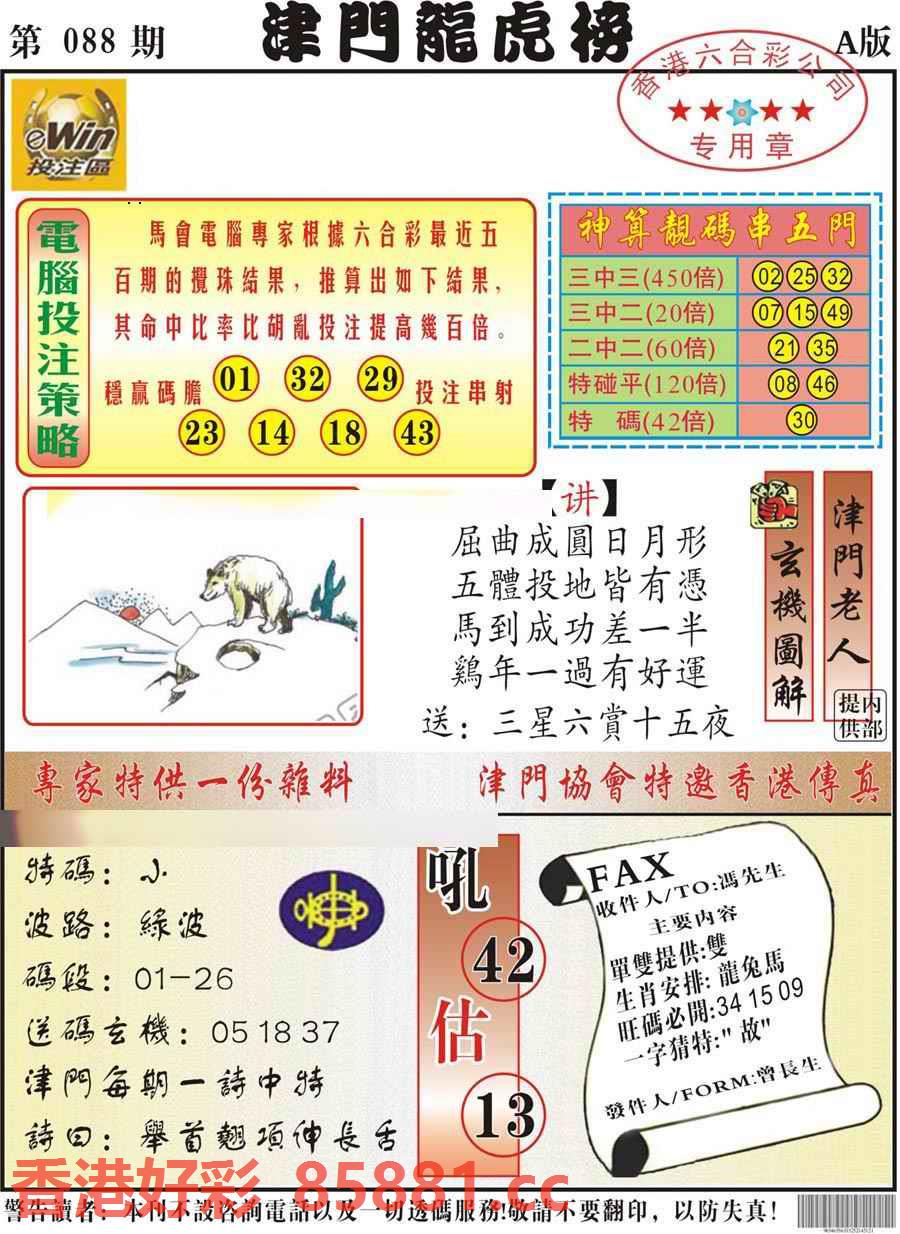 第 088 期
津門龍虎榜
A版
香港六合彩公司
专用章
eWin
投注區
電腦投注策略
馬會電腦專家根據六合彩最近五
百期的攪珠結果，推算出如下結果，
其命中比率比胡亂投注提高幾百倍。
穩贏碼膽 01 32 29 投注串射
23 14 18 43
神算靚碼串五門
三中三(450倍) 02 25 32
三中二(20倍) 07 15 49
二中二(60倍) 21 35
特碰平(120倍) 08 46
特 碼(42倍) 30
【讲】
屈曲成圓日月形
五體投地皆有憑
馬到成功差一半
鷄年一過有好運
送：三星六賞十五夜
玄機圖解
津門老人
内部提供
專家特供一份雜料
津門協會特邀香港傳真
特碼：小
波路：綠波
碼段：01-26
送碼玄機：05 18 37
津門每期一詩中特
詩曰：舉首翹項伸長舌
吼
42
估
13
FAX
收件人/TO:馮先生
主要内容
單雙提供:雙
生肖安排:龍兔馬
旺碼必開:34 15 09
一字猜特:"故"
發件人/FORM:曾長生
香港好彩 85881.cc
警告讀者：本刊不設咨詢電話以及一切透碼服務!敬請不要翻印，以防失真!